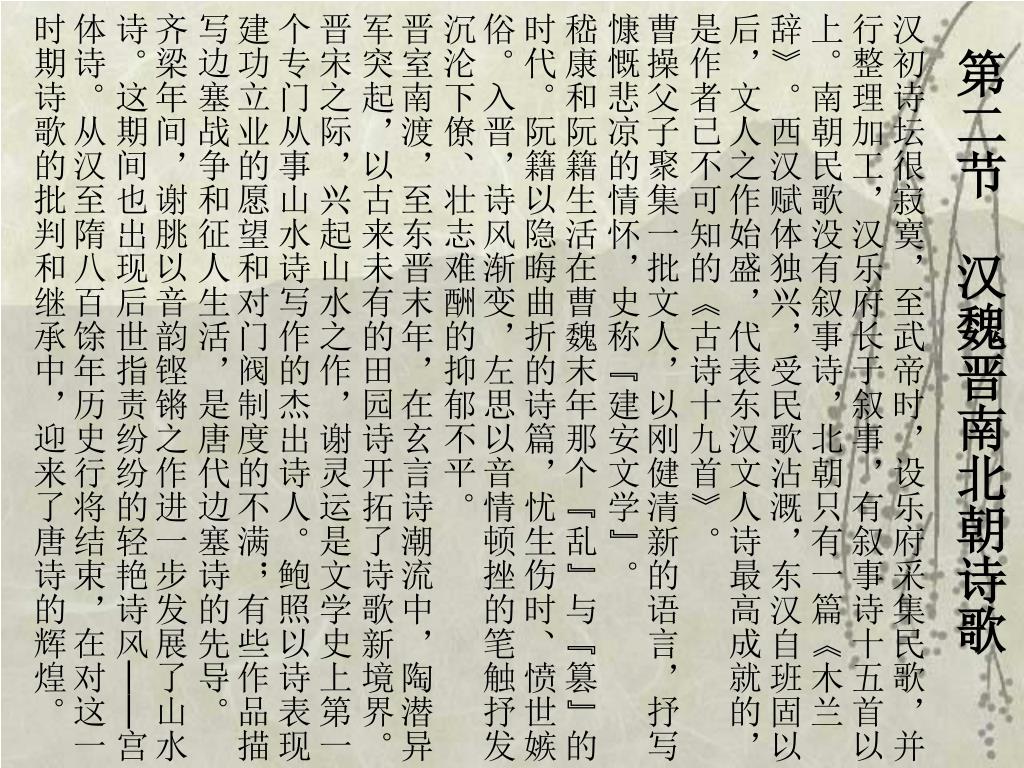 第二节　汉魏晋南北朝诗歌
汉初诗坛很寂寞，至武帝时，设乐府采集民歌，并
行整理加工，汉乐府长于叙事，有叙事诗十五首以
上。南朝民歌没有叙事诗，北朝只有一篇《木兰
辞》。西汉赋体独兴，受民歌沾溉，东汉自班固以
后，文人之作始盛，代表东汉文人诗最高成就的，
是作者已不可知的《古诗十九首》。
曹操父子聚集一批文人，以刚健清新的语言，抒写
慷慨悲凉的情怀，史称『建安文学』。
嵇康和阮籍生活在曹魏末年那个『乱』与『篡』的
时代。阮籍以隐晦曲折的诗篇，忧生伤时、愤世嫉
俗。入晋，诗风渐变，左思以音情顿挫的笔触抒发
沉沦下僚、壮志难酬的抑郁不平。
晋室南渡，至东晋末年，在玄言诗潮流中，陶潜异
军突起，以古来未有的田园诗开拓了诗歌新境界。
晋宋之际，兴起山水之作，谢灵运是文学史上第一
个专门从事山水诗写作的杰出诗人。鲍照以诗表现
建功立业的愿望和对门阀制度的不满；有些作品描
写边塞战争和征人生活，是唐代边塞诗的先导。
齐梁年间，谢朓以音韵铿锵之作进一步发展了山水
诗。这期间也出现后世指责纷纷的轻艳诗风——宫
体诗。从汉至隋八百馀年历史行将结束，在对这一
时期诗歌的批判和继承中，迎来了唐诗的辉煌。